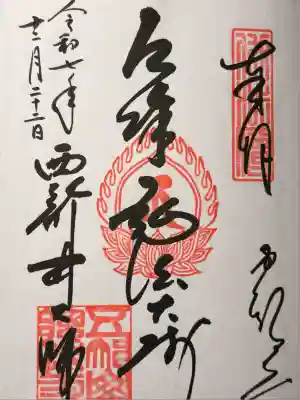 奉拝
五智山
厄除弘法大師
令和七年
十二月二十二日
西新井大師